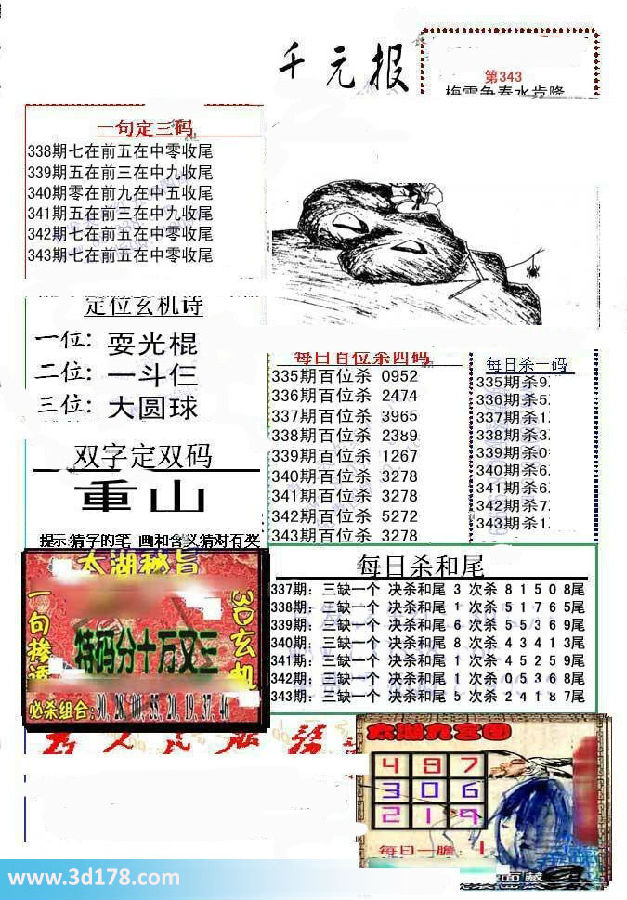 千元报
第343
梅雪争春水肯隆
一句定三码
338期七在前五在中零收尾
339期五在前三在中九收尾
340期零在前九在中五收尾
341期五在前三在中九收尾
342期七在前五在中零收尾
343期七在前五在中零收尾
定位玄机诗
一位: 耍光棍
二位: 一斗仨
三位: 大圆球
双字定双码
重山
提示:猜字的笔 画和含义猜对有奖
每日百位杀四码
335期百位杀 0952
336期百位杀 2474
337期百位杀 3965
338期百位杀 2389
339期百位杀 1267
340期百位杀 3278
341期百位杀 3278
342期百位杀 5272
343期百位杀 3278
每日杀一码
335期杀9.
336期杀5.
337期杀1.
338期杀3.
339期杀0
340期杀6.
341期杀6.
342期杀7.
343期杀1.
每日杀和尾
337期: 三缺一个 决杀和尾 3 次杀 8 1 5 0 8尾
338期: 三缺一个 决杀和尾 1 次杀 5 1 7 6 5尾
339期: 三缺一个 决杀和尾 6 次杀 5 5 3 6 9尾
340期: 三缺一个 决杀和尾 8 次杀 4 3 4 1 3尾
341期: 三缺一个 决杀和尾 1 次杀 4 5 2 5 9尾
342期: 三缺一个 决杀和尾 1 次杀 0 5 3 6 8尾
343期: 三缺一个 决杀和尾 5 次杀 2 4 1 8 7尾
太湖秘旨
一句掺透
3D玄机
特码分十万又三
必杀组合:
太湖九宫图
4 8 7
3 0 6
2 1 9
每日一胆 1
www.3d178.com